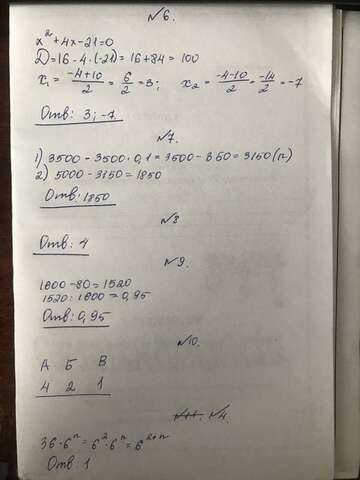 №6.
x²+4x-21=0
D=16-4·(-21)=16+84=100
x₁=(-4+10)/2=6/2=3; x₂=(-4-10)/2=-14/2=-7
Отв: 3; -7.
№7.
1) 3500-3500·0,1=3500-350=3150(п)
2) 5000-3150=1850
Отв: 1850
№8
Отв: 4
№9.
1600-80=1520
1520:1600=0,95
Отв: 0,95
№10.
А Б В
4 2 1
№4.
36·6ⁿ=6²·6ⁿ=6²⁺ⁿ
Отв: 1